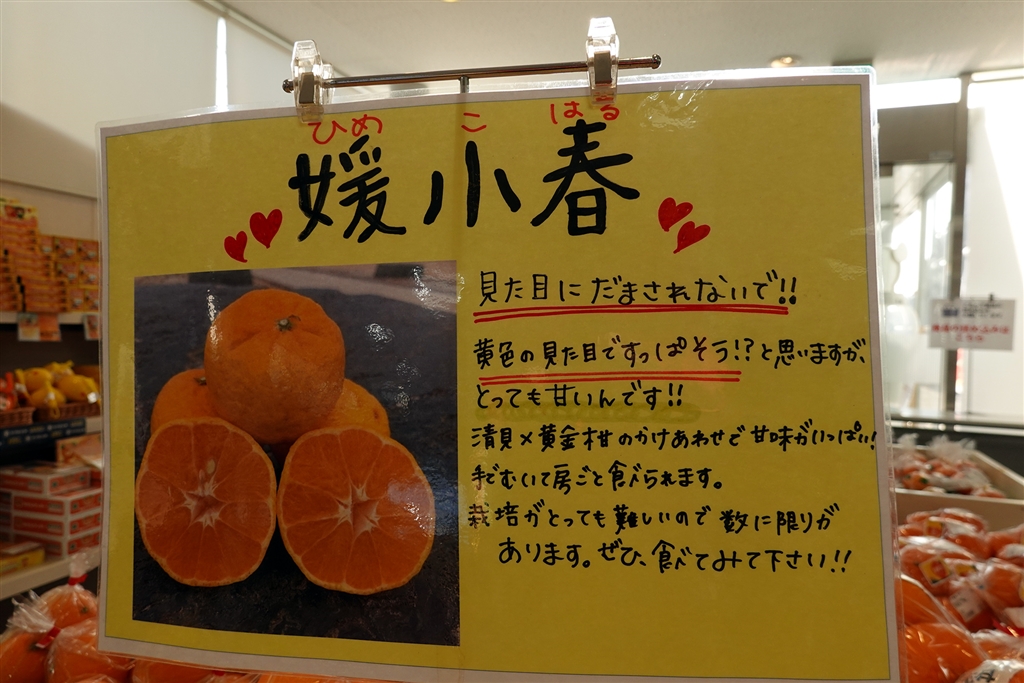 ひめ こ はる
媛小春
見た目にだまされないで!!
黄色の見た目ですっぱそう!?と思いますが、
とっても甘いんです!!
清見×黄金柑のかけあわせで甘味がいっぱい!
手でむいて房ごと食べられます。
栽培がとっても難しいので数に限りが
あります。ぜひ、食べてみて下さい!!